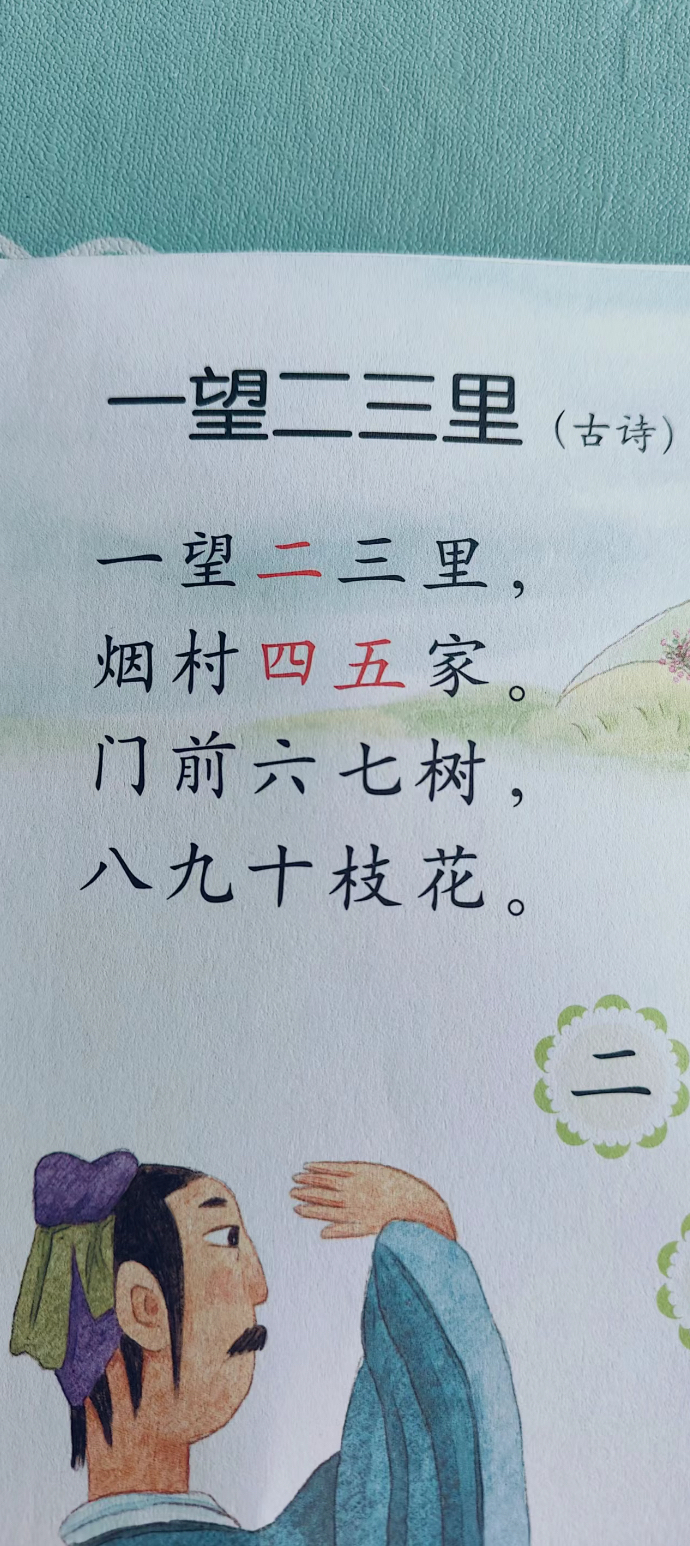 一望二三里（古诗）
一望二三里，
烟村四五家。
门前六七树，
八九十枝花。
二